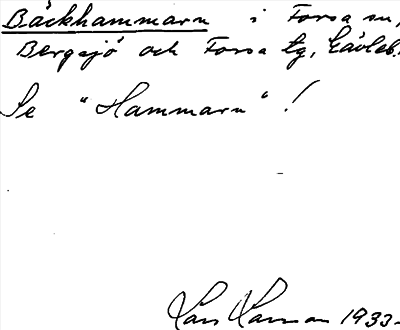 Bäckhammarn i Forsa sn,
Bergsjö och Forsa tg, Gävleb.
Se "Hammarn"!
Lars Larsson 1933-